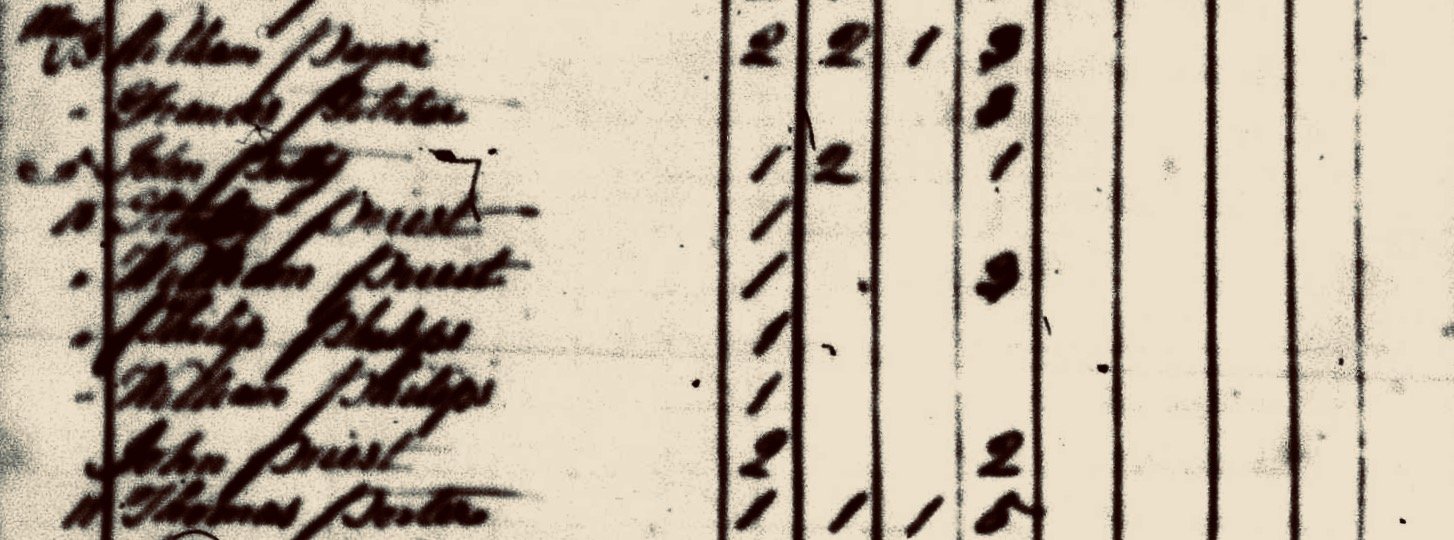 William Payne 2 2 1 3
Frances 3
John Petty 1 2 1
Priest 1
William Priest 1 3
Philip Philips 1
William Philips 1
John Priest 2 2
Thomas Porter 1 1 1 5